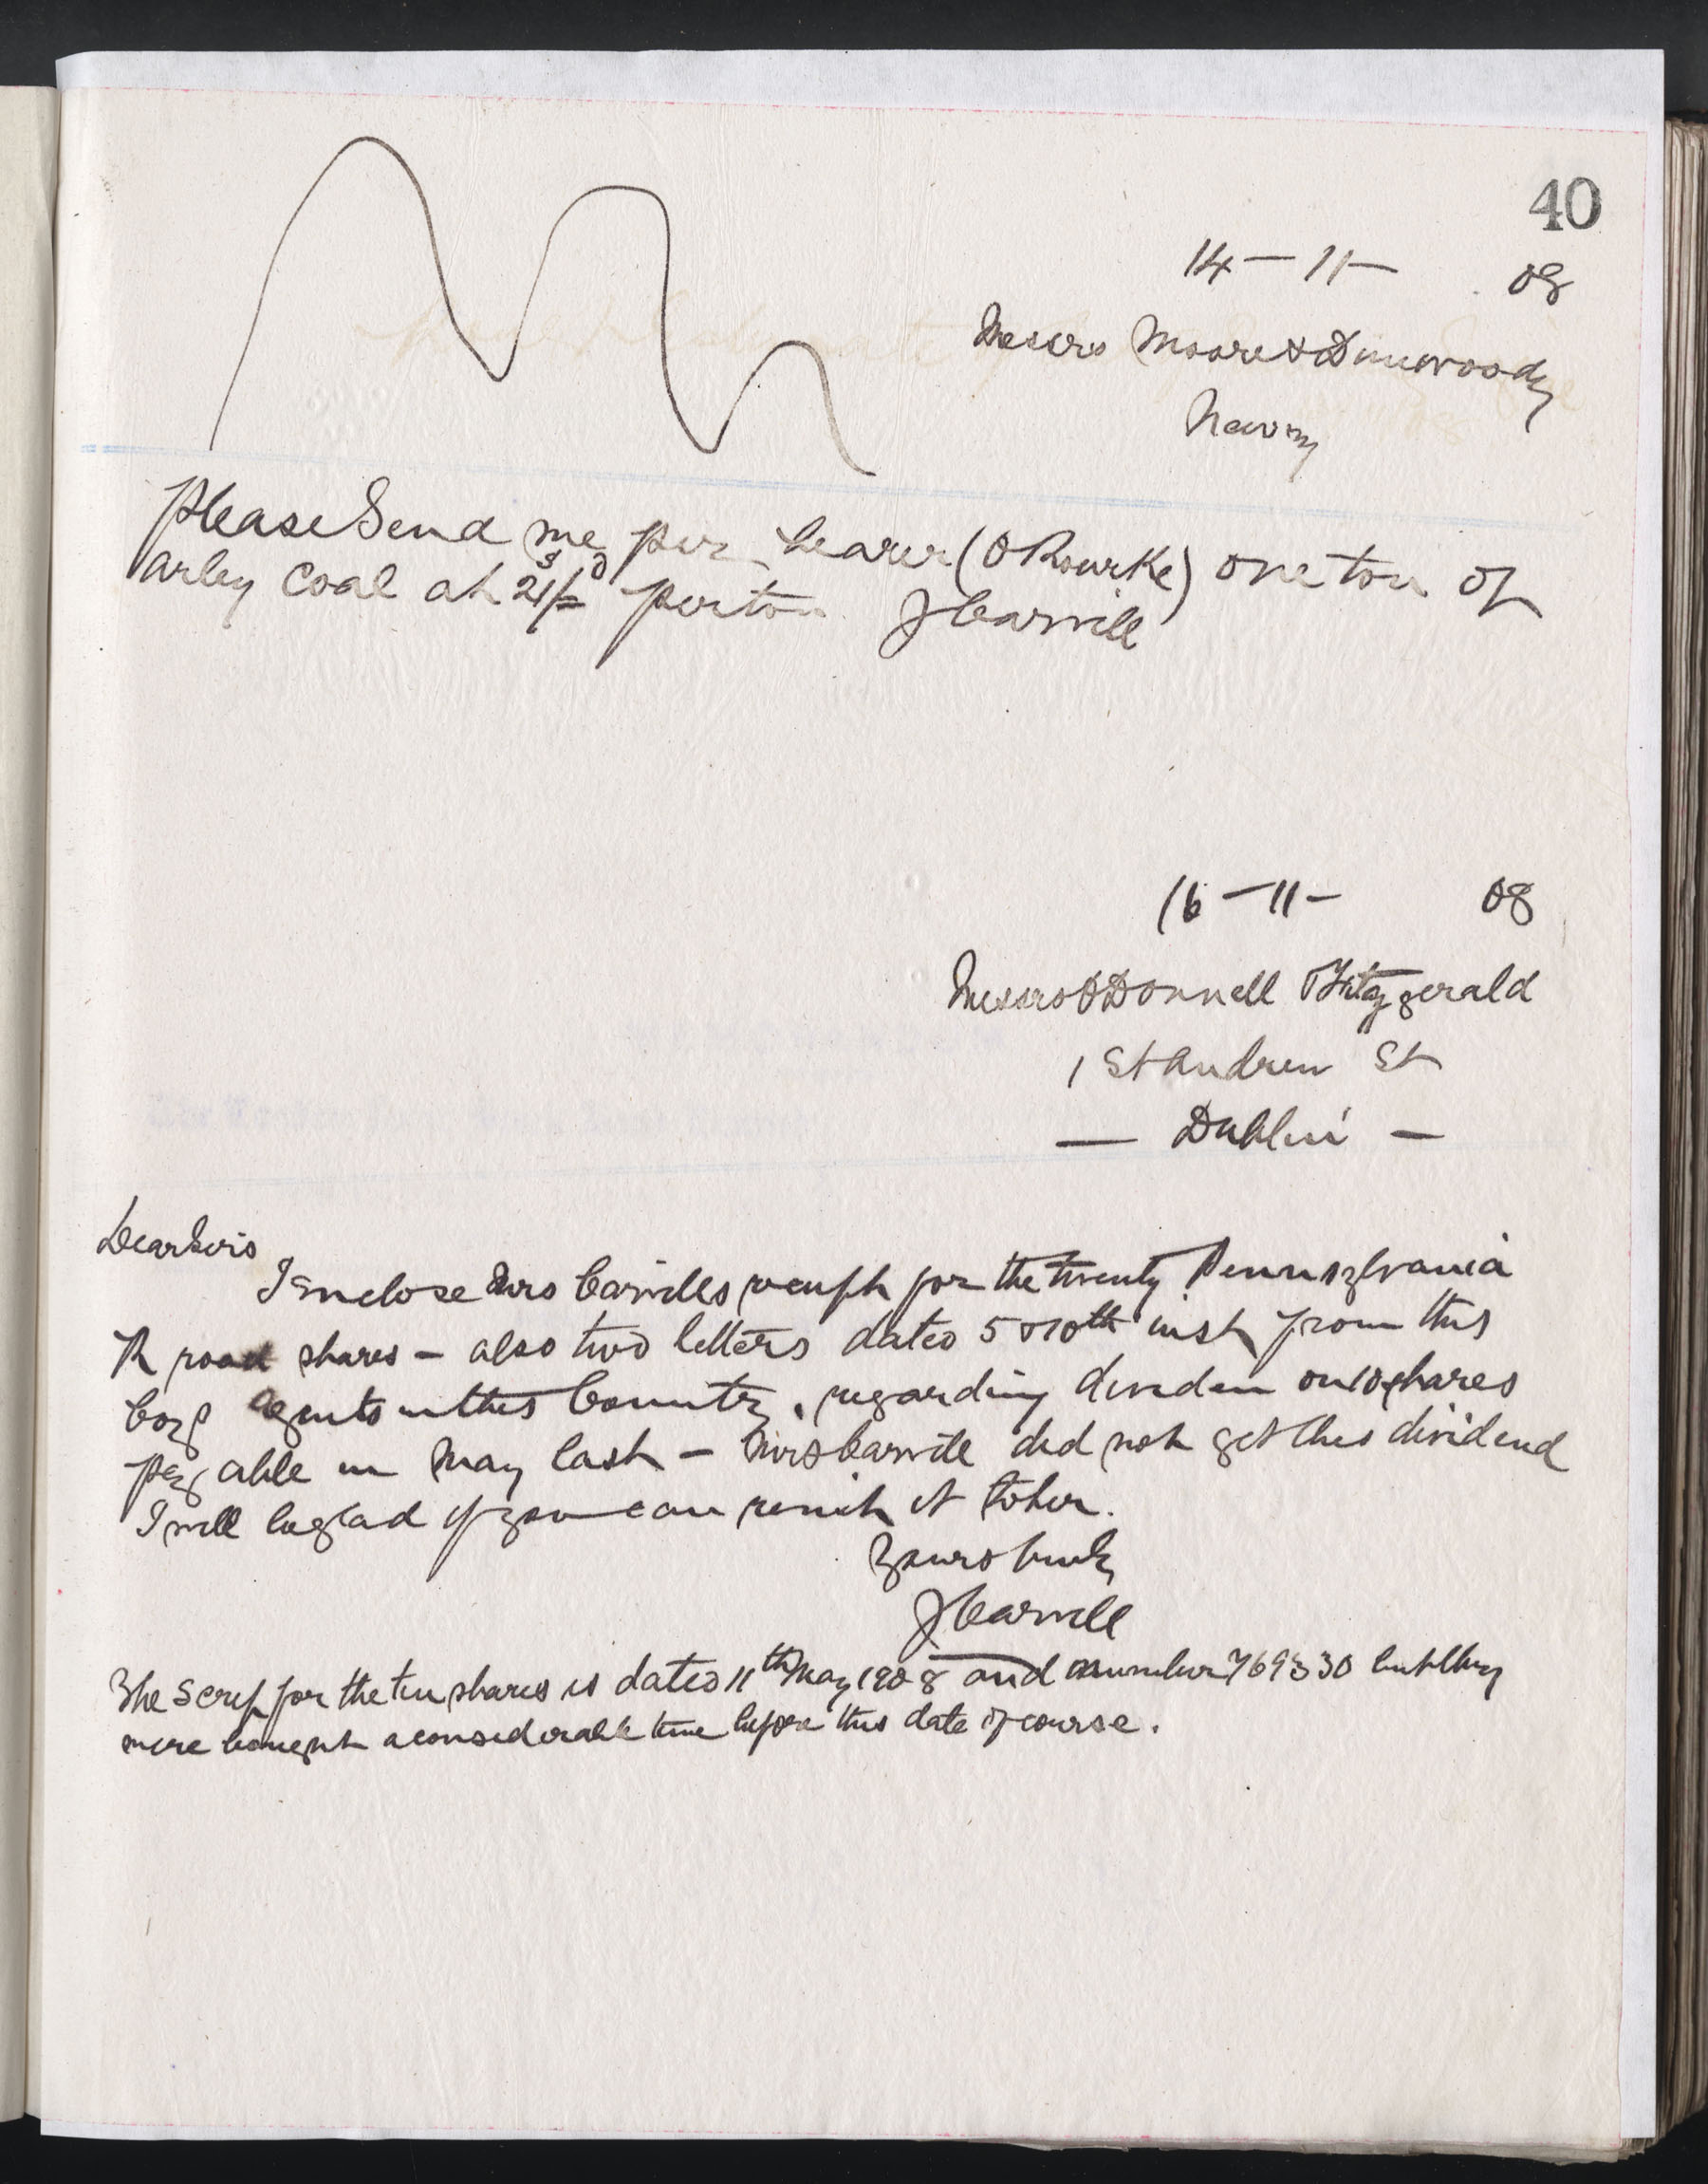 40
14 - 11 - 08
Messrs Moore & Dinwoody
Newry
Please Send me per bearer (O Rourke) one ton of
Arley Coal at 21s/= per ton J Carvill
16 - 11 - 08
Messrs O Donnell Fitzgerald
1 St Andrew St
— Dublin —
Dear Sirs
I enclose Mrs Carvills receipt for the twenty Pennsylvania
R road shares - also two letters dated 5 & 10th inst from this
Coys agents in this Country, regarding dividen on 10 shares
payable in May last - Mrs Carvill did not get this dividend
I will be glad if you can remit it to her.
Yours truly
J Carvill
The Scrip for the ten shares is dated 11th May 1908 and number 769330 but they
were bought a considerable time before this date of course.